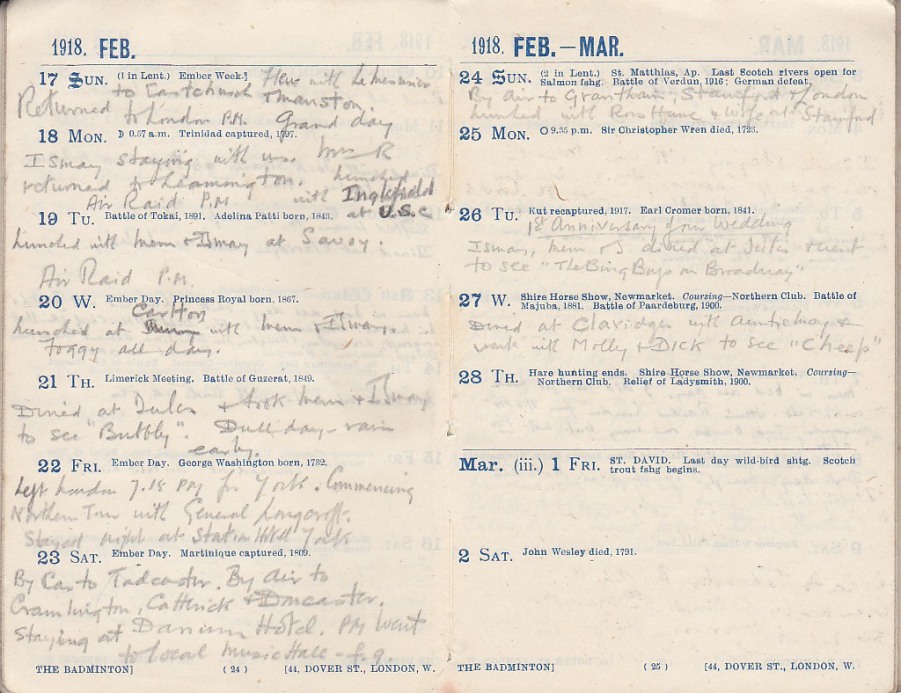 1918. FEB.
17 SUN. (1 in Lent.) Ember Week.] Flew with
to Eastchurch & Manston.
Returned to London P.M. Grand day
18 MON. D 0.57 a.m. Trinidad captured, 1797.
Ismay staying with us. Mrs R
returned to Leamington. Lunched
Air Raid P.M. with Inglefield
at U.S.C
19 TU. Battle of Tokai, 1891. Adelina Patti born, 1843.
Lunched with Mem & Ismay at Savoy.
Air Raid P.M.
20 W. Ember Day. Princess Royal born, 1867.
Carlton
Lunched at with Mem & Ismay.
Foggy all day.
21 TH. Limerick Meeting. Battle of Guzerat, 1849.
Dined at Jules & took Mem & Ismay
to see "Bubbly". Dull day - rain
early.
22 FRI. Ember Day. George Washington born, 1732.
Left London 7.15 PM for York. Commencing
Northern Tour with General Longcroft.
Stayed night at Station Hotel York
23 SAT. Ember Day. Martinique captured, 1809.
By Car to Tadcaster. By Air to
Cramlington, Catterick & Doncaster.
Staying at Danum Hotel. PM went
to local Music Hall - f.g.
THE BADMINTON] (24) [44, DOVER ST., LONDON, W.
1918. FEB.—MAR.
24 SUN. (2 in Lent.) St. Matthias, Ap. Last Scotch rivers open for
Salmon fshg. Battle of Verdun, 1916; German defeat.
By Air to Grantham, Stamford & London
Lunched with Ross Hume & wife at Stamford
25 MON. O 9.35 p.m. Sir Christopher Wren died, 1723.
26 TU. Kut recaptured, 1917. Earl Cromer born, 1841.
1st Anniversary of our Wedding
Ismay, Mem & I dined at Jules & went
to see "The Bing Boys on Broadway"
27 W. Shire Horse Show, Newmarket. Coursing—Northern Club. Battle of
Majuba, 1881. Battle of Paardeburg, 1900.
Dined at Claridges with Auntie May &
went with Molly & Dick to see "Cheep"
28 TH. Hare hunting ends. Shire Horse Show, Newmarket. Coursing—
Northern Club. Relief of Ladysmith, 1900.
Mar. (iii.) 1 FRI. ST. DAVID. Last day wild-bird shtg. Scotch
trout fshg begins.
2 SAT. John Wesley died, 1791.
THE BADMINTON] (25) [44, DOVER ST., LONDON, W.